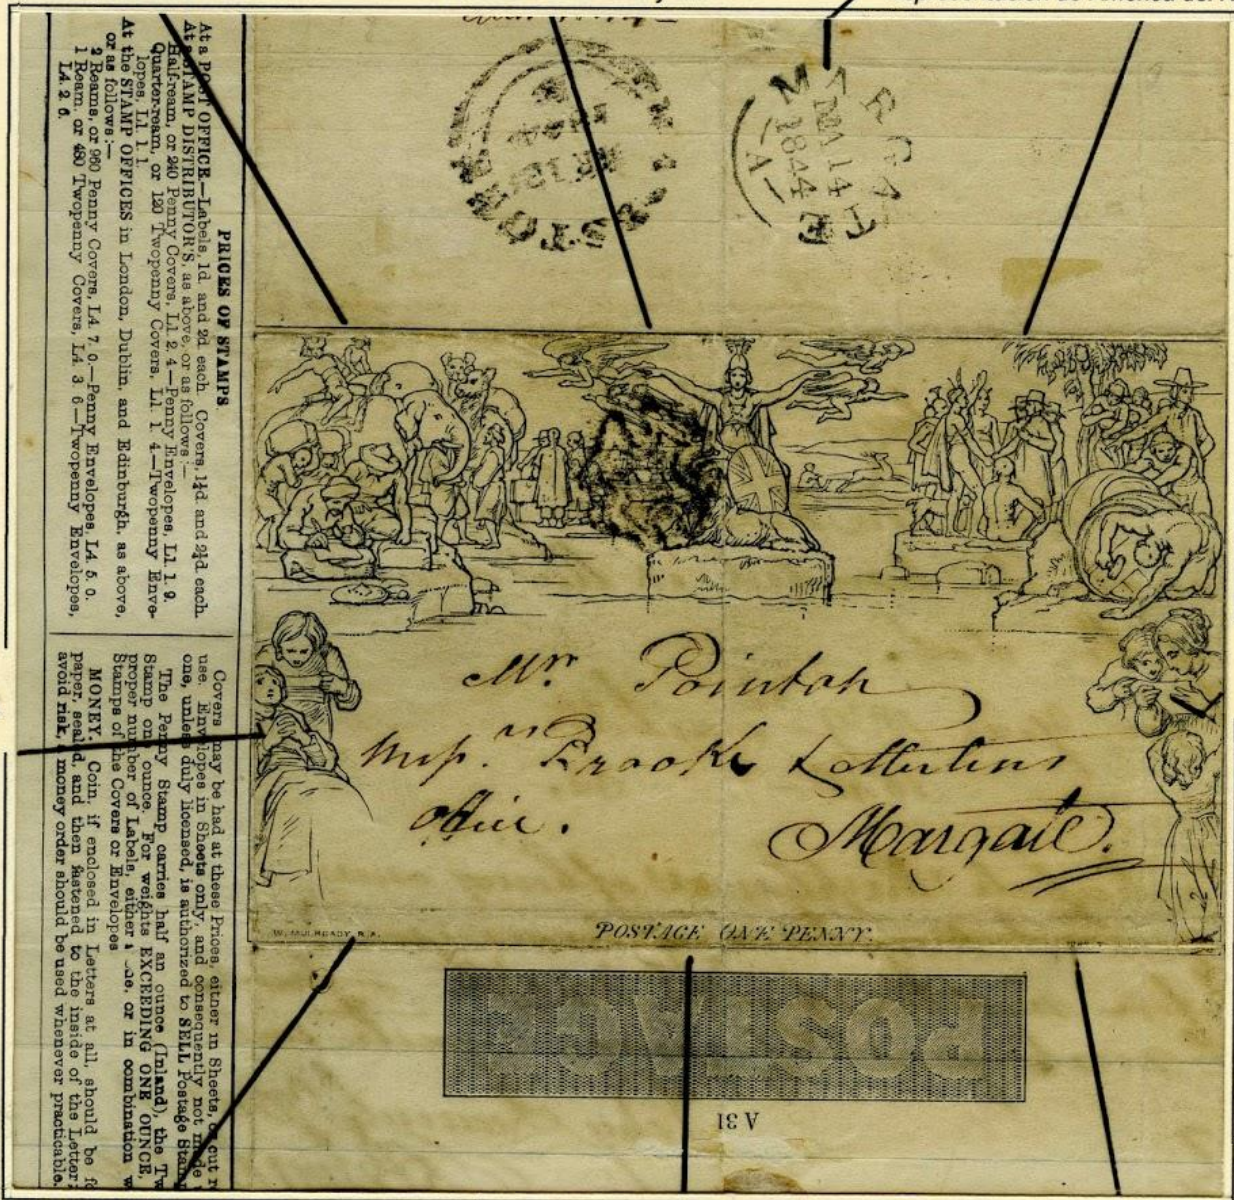 PRICES OF STAMPS
At a POST OFFICE.—Labels, 1d. and 2d. each. Covers, 1¼d and 2¼d. each.
At a STAMP DISTRIBUTOR'S, as above, or as follows:—
Half-ream, or 240 Penny Covers, L1 2 4—Penny Envelopes, L1. 1. 9.
Quarter-ream, or 120 Twopenny Covers, L1. 1. 4—Twopenny Enve-
lopes, L1. 1. 1
At the STAMP OFFICES in London, Dublin, and Edinburgh, as above,
or as follows:—
2 Reams, or 960 Penny Covers, L4. 7. 0.—Penny Envelopes, L4. 5. 0.
1 Ream, or 480 Twopenny Covers, L4. 3. 6—Twopenny Envelopes,
L4. 2. 6.
Covers may be had at these Prices, either in Sheets, or cut
use. Envelopes in Sheets only, and consequently not made
one, unless duly licensed, is authorized to SELL Postage Stam
The Penny Stamp carries half an ounce (Inland), the Tw
Stamp one ounce. For weights EXCEEDING ONE OUNCE,
proper number of Labels, either or in combination w
Stamps of the Covers or Envelopes
MONEY. Coin, if enclosed in Letters at all, should be
paper, sealed, and then fastened to the inside of the Letter;
avoid risk, a money order should be used whenever practicable.
MARGATE
MY 14
1844
A
Mr. Pointon
Messrs. Brooke &
Office.
Margate.
W. MULREADY. R.A.
POSTAGE ONE PENNY.
POSTAGE
A 31